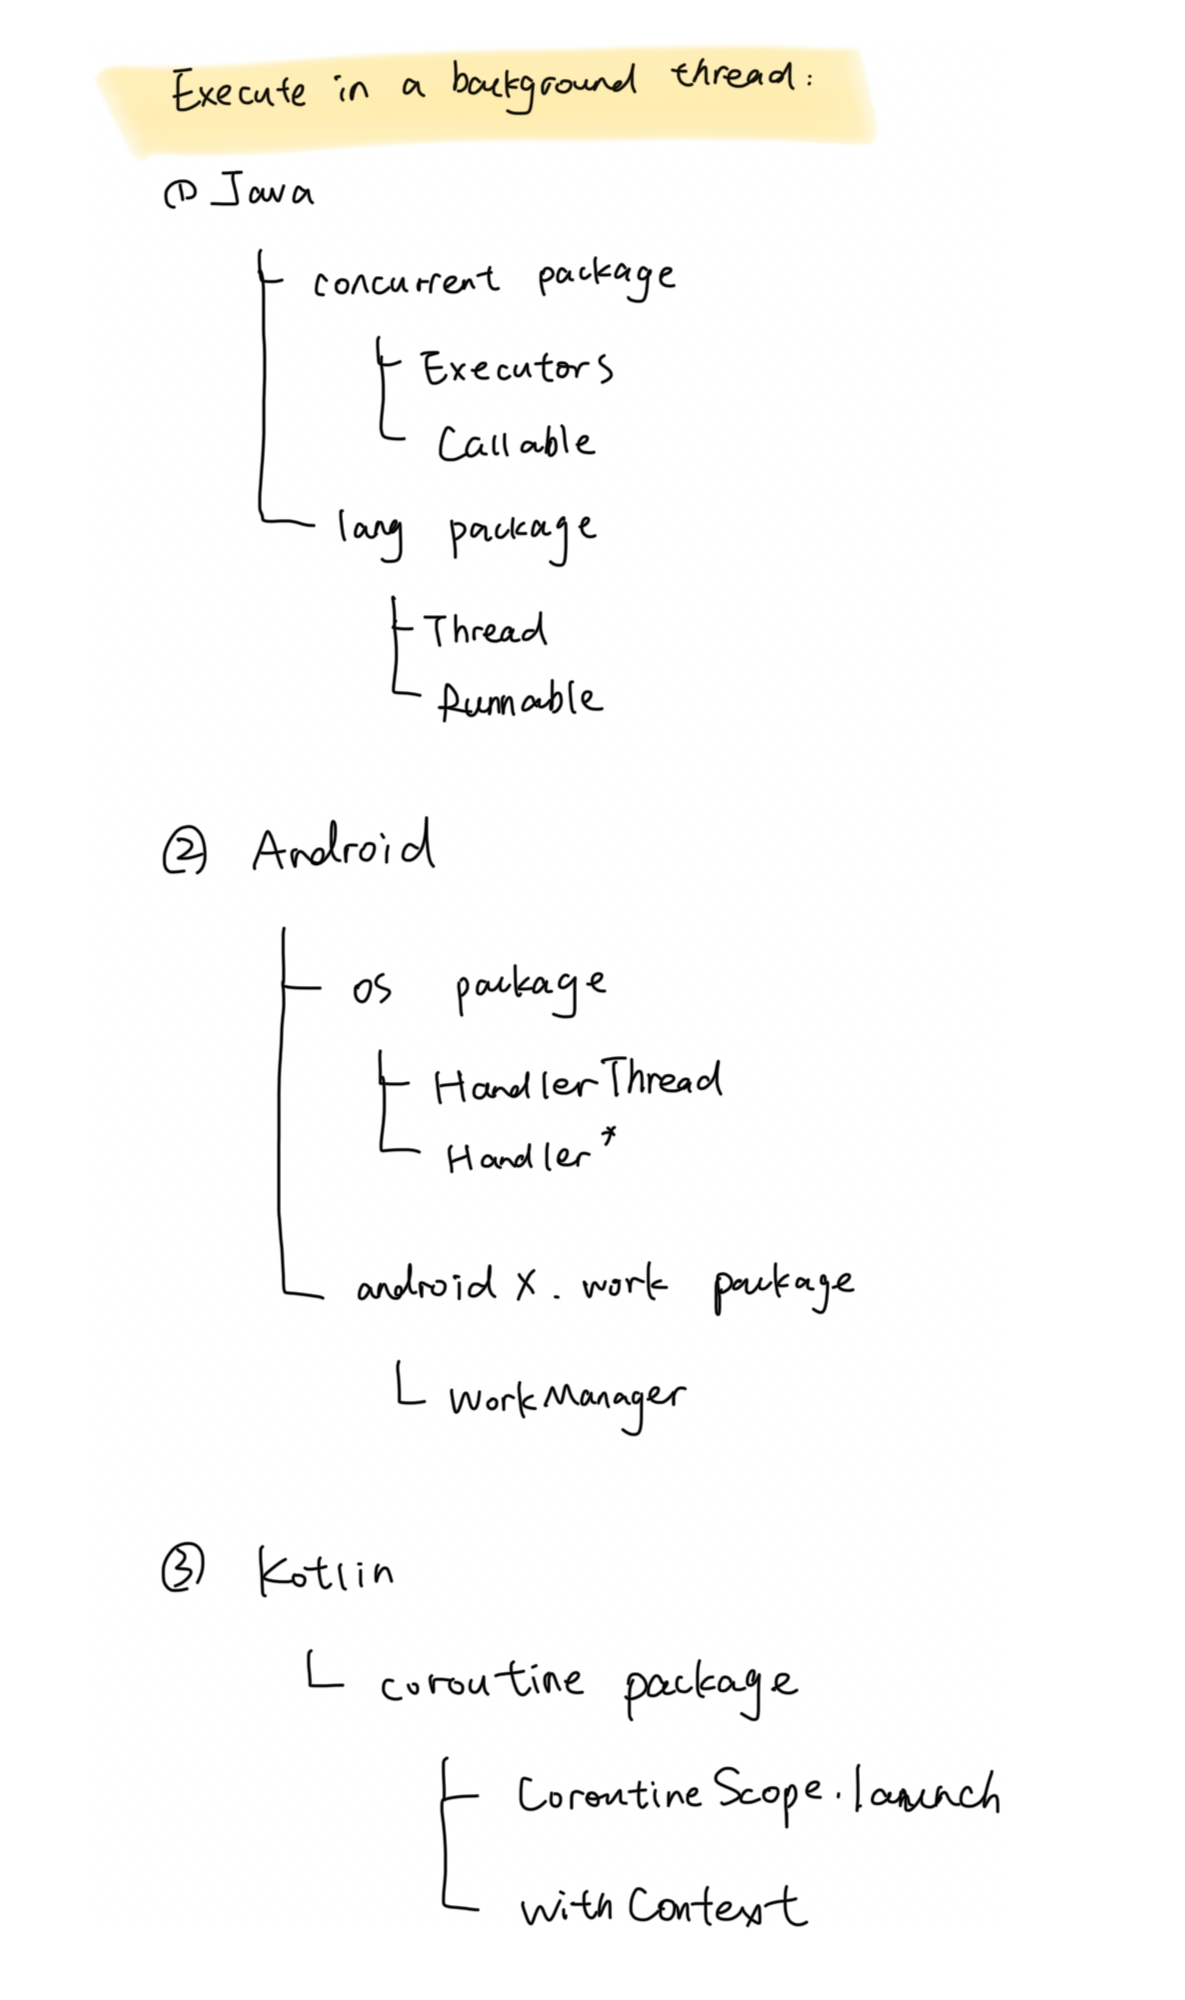 Execute in a background thread:
① Java
concurrent package
Executors
Callable
lang package
Thread
Runnable
② Android
os package
HandlerThread
Handler*
androidX.work package
WorkManager
③ Kotlin
coroutine package
CoroutineScope.launch
withContext